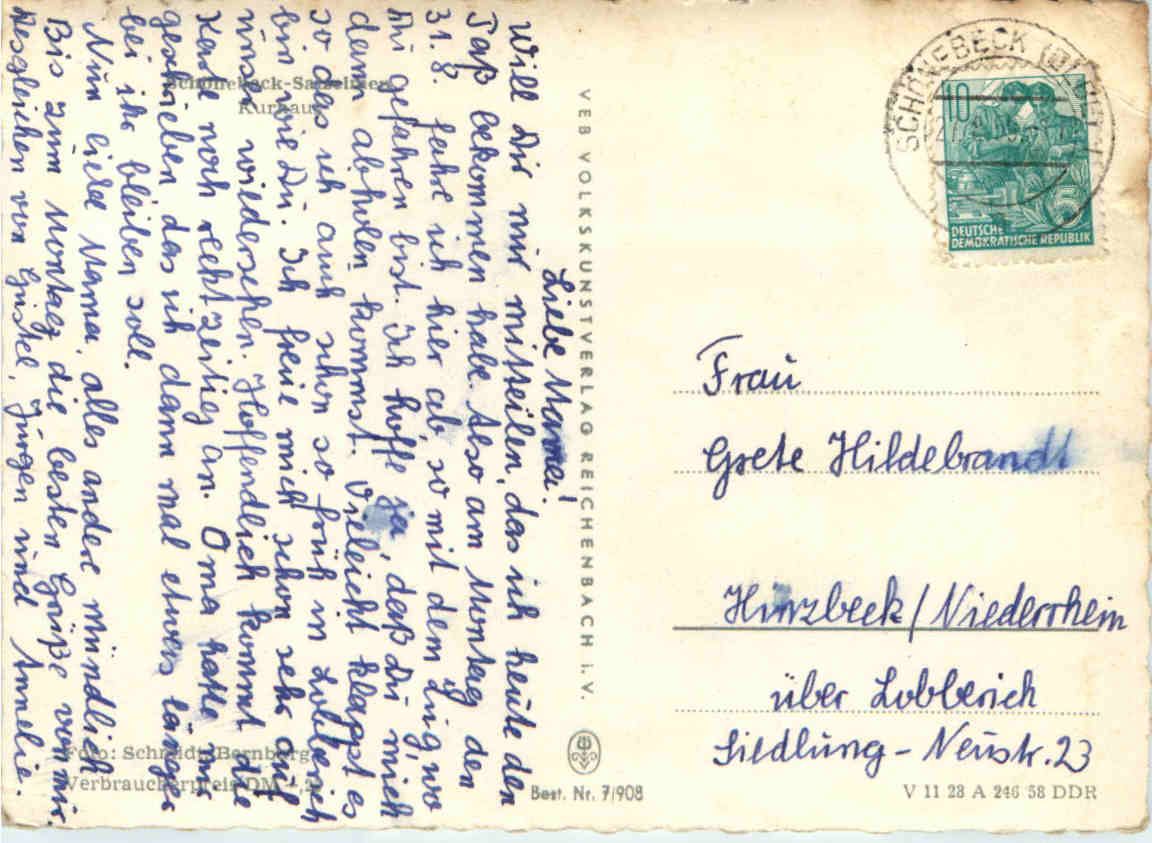 Schönebeck-Salzelmen
Kurhaus
Liebe Mama!
Will Dir mir mitteilen, das ich heute den
Paß bekommen habe. Also am Montag den
31.8. fahre ich hier ab, so mit dem Zug, wo
Du gefahren bist. Ich hoffe ja, daß Du mich
dann abholen kommst. Vieleicht klappt es
so das ich auch schon so früh in Lobberich
bin wie Du. Ich freue mich schon sehr auf
unser wiedersehen. Hoffendlich kommt die
Karte noch rechtzeitig an. Oma hatte mir
geschrieben das ich dann mal etwas länger
bei ihr bleiben soll.
Nun liebe Mama, alles andere mündlich.
Bis zum Montag die besten Grüße von mir.
Desgleichen von Gustel, Jürgen und Annelie.
Foto: Schmidt, Bernburg
Verbraucherpreis DM
VEB VOLKSKUNSTVERLAG REICHENBACH i. V.
Best. Nr. 7/908
SCHÖNEBECK
10
5
DEUTSCHE
DEMOKRATISCHE REPUBLIK
Frau
Grete Hildebrandt
Hinzbeck/Niederrhein
über Lobberich
Siedlung-Neustr. 23
V 11 28 A 246 58 DDR